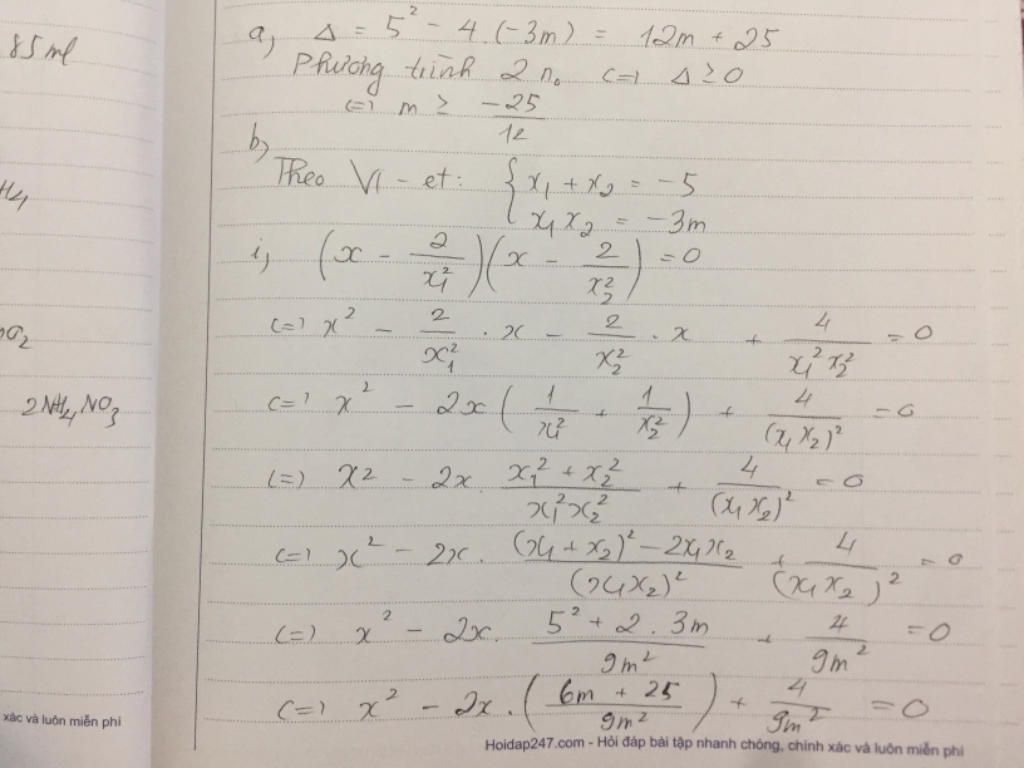 85ml
a) Δ = 5² - 4.(-3m) = 12m + 25
Phương trình 2 n₀ <=> Δ ≥ 0
<=> m ≥ -25/12
b)
Theo Vi-et: { x₁ + x₂ = -5
x₁x₂ = -3m
i) (x - 2/x₁²)(x - 2/x₂²) = 0
<=> x² - 2/x₁² . x - 2/x₂² . x + 4/x₁²x₂² = 0
2NH₄NO₃
<=> x² - 2x(1/x₁² + 1/x₂²) + 4/(x₁x₂)² = 0
<=> x² - 2x. (x₁² + x₂²)/x₁²x₂² + 4/(x₁x₂)² = 0
<=> x² - 2x. ((x₁+x₂)² - 2x₁x₂)/(x₁x₂)² + 4/(x₁x₂)² = 0
<=> x² - 2x. (5² + 2.3m)/9m² + 4/9m² = 0
<=> x² - 2x.((6m + 25)/9m²) + 4/9m² = 0
xác và luôn miễn phí
Hoidap247.com - Hỏi đáp bài tập nhanh chóng, chính xác và luôn miễn phí